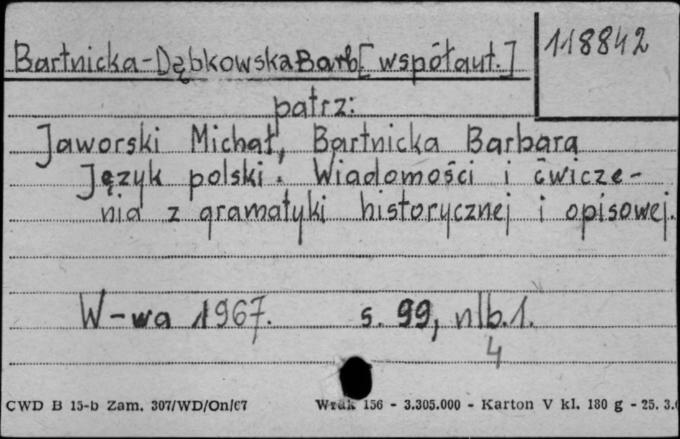 Bartnicka-Dąbkowska Barb[współaut.]
118842
patrz:
Jaworski Michał, Bartnicka Barbara
Język polski. Wiadomości i ćwicze-
nia z gramatyki historycznej i opisowej.
W-wa 1967. s. 99, nlb.1.
4
CWD B 15-b Zam. 307/WD/On/67 Wzak 156 - 3.305.000 - Karton V kl. 180 g - 25. 3.6